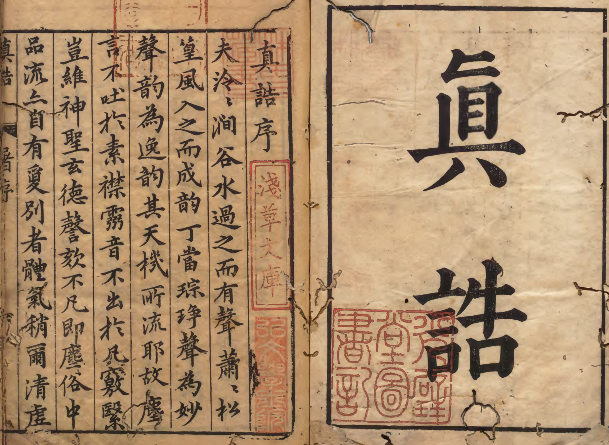 眞誥
堂圖
書記
真誥序
淺草文庫
夫泠〻澗谷水過之而有聲蕭〻松
篁風入之而成韵丁當琮琤聲為妙
聲韵為逸韵其天機所流耶故塵
言不吐於素襟霱音不出於凡竅繄
豈維神聖玄德謦欬不凡即塵俗中
品流亦自有夐別者體氣稍爾清虛
真誥 序